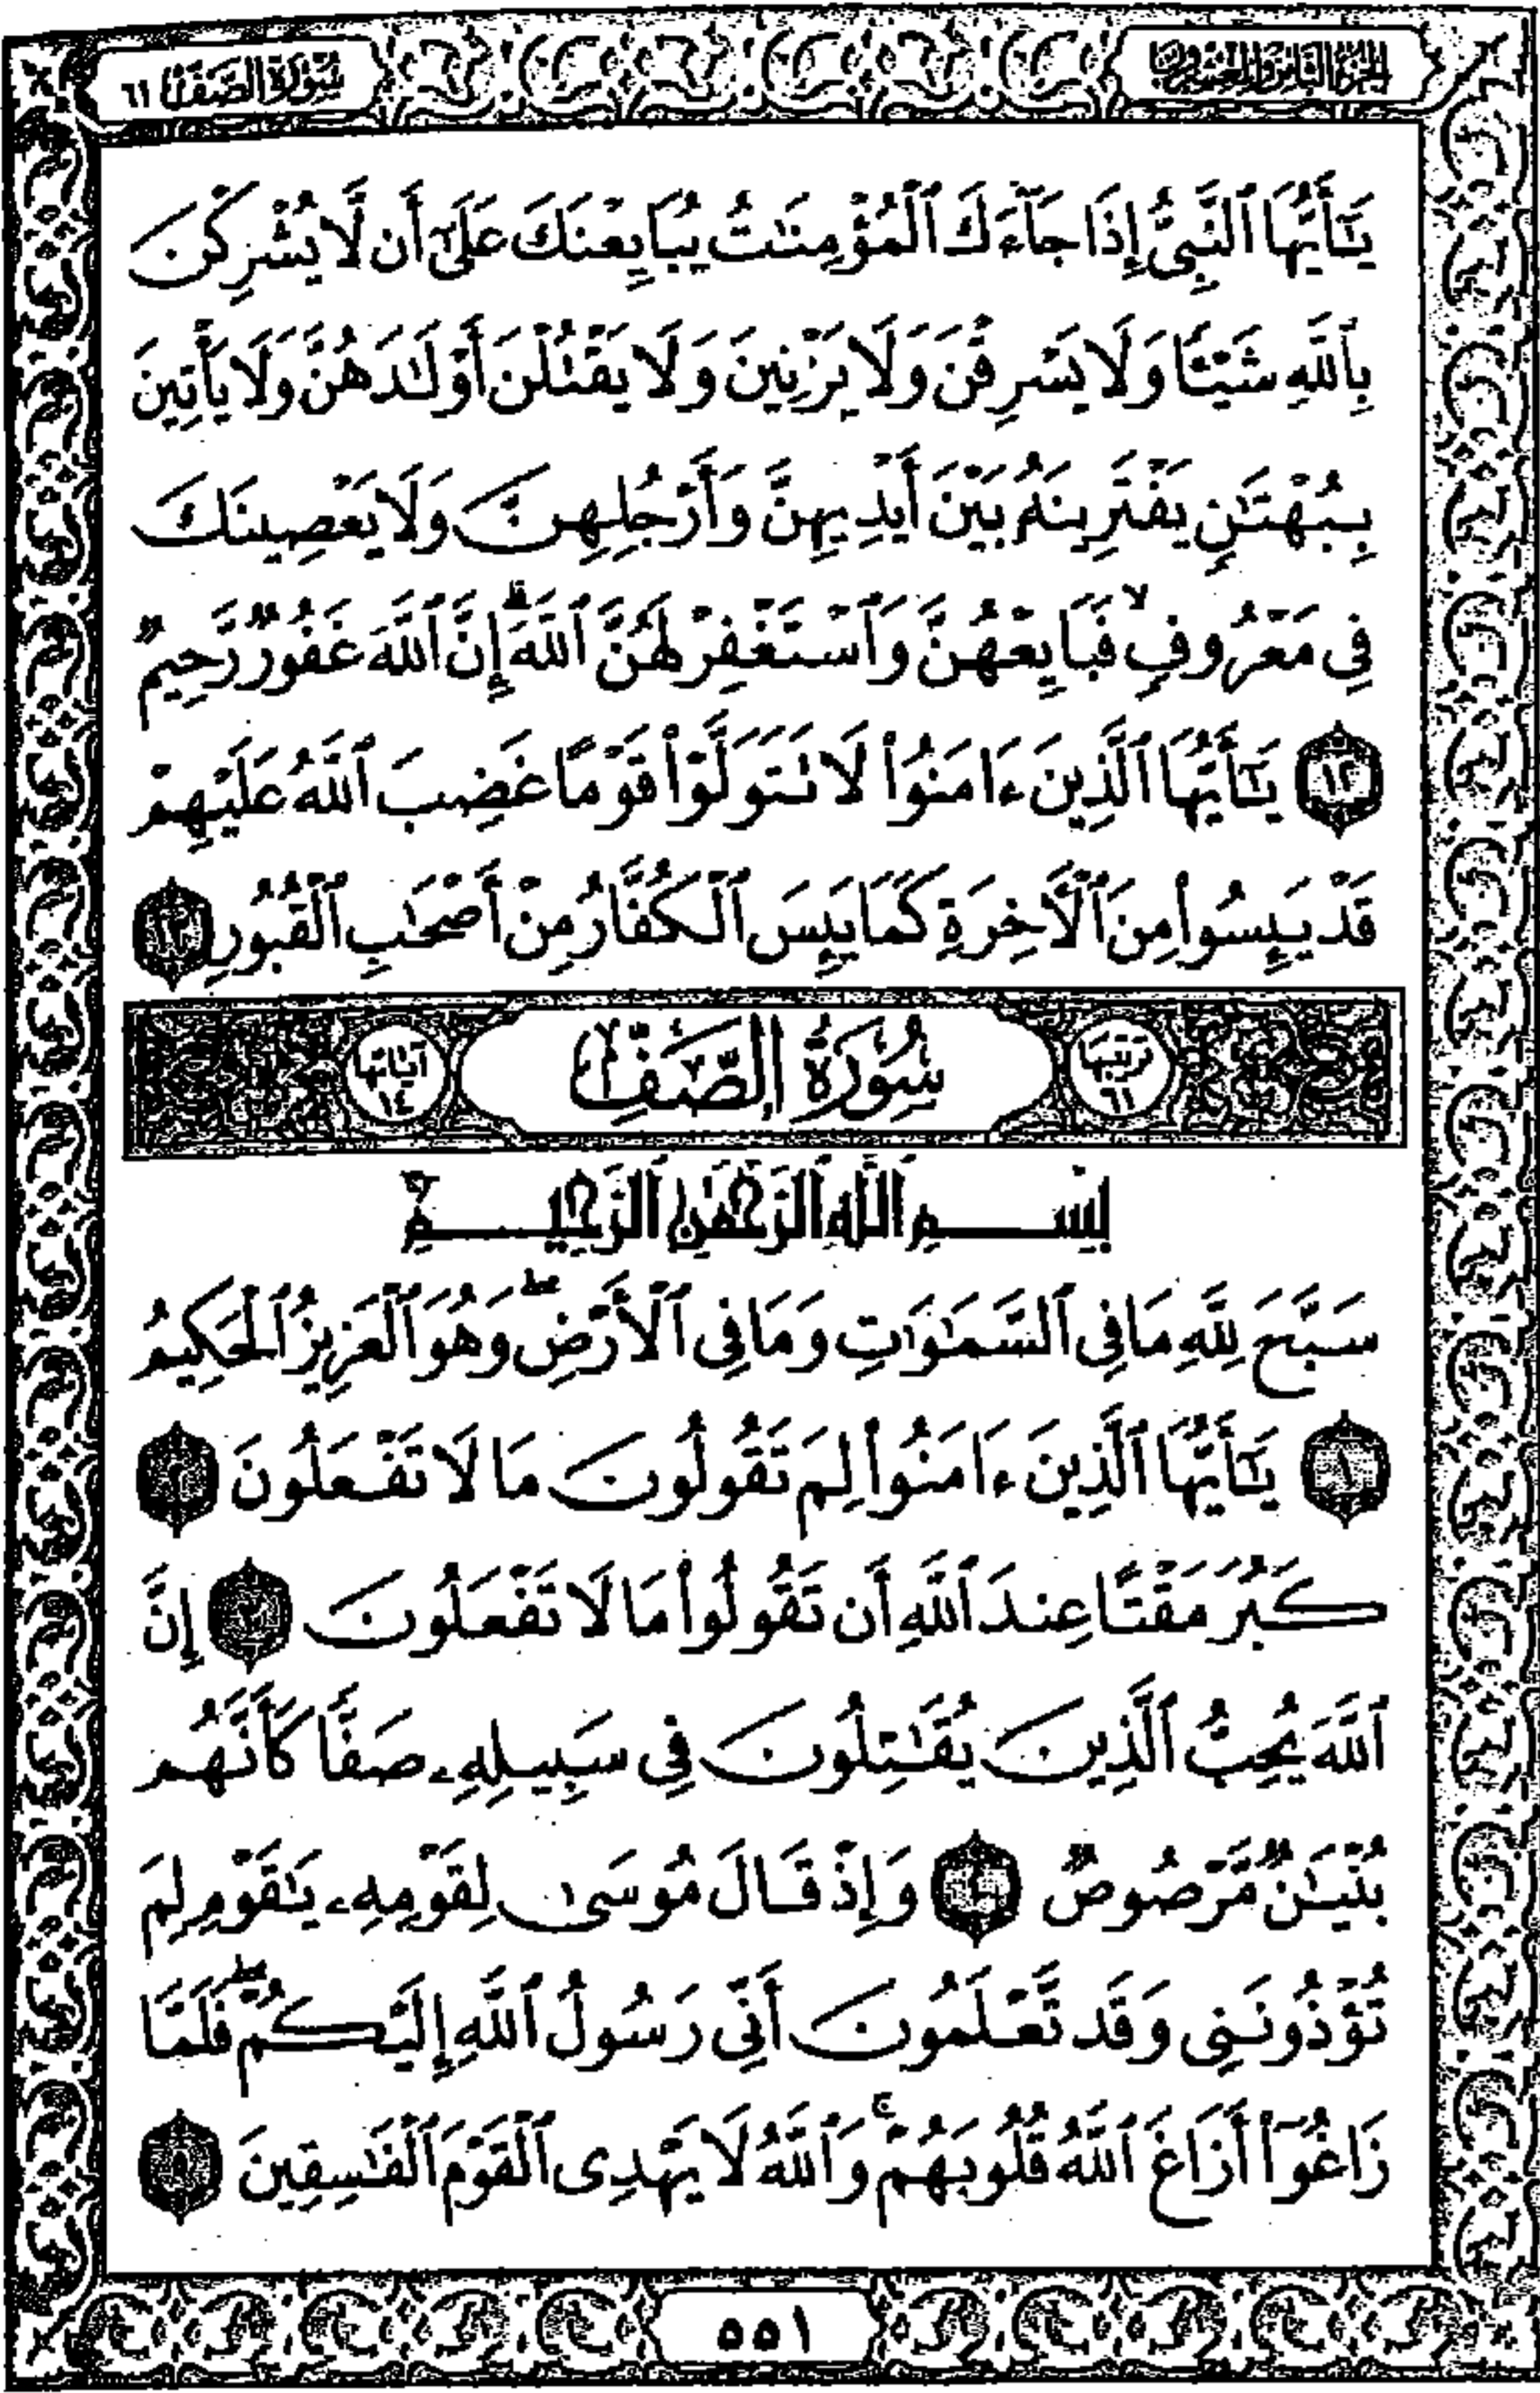 الجزء الثامن والعشرون
سورة الصف ٦١
يَـٰٓأَيُّهَا ٱلنَّبِىُّ إِذَا جَآءَكَ ٱلْمُؤْمِنَـٰتُ يُبَايِعْنَكَ عَلَىٰٓ أَن لَّا يُشْرِكْنَ
بِٱللَّهِ شَيْـًٔا وَلَا يَسْرِقْنَ وَلَا يَزْنِينَ وَلَا يَقْتُلْنَ أَوْلَـٰدَهُنَّ وَلَا يَأْتِينَ
بِبُهْتَـٰنٍ يَفْتَرِينَهُۥ بَيْنَ أَيْدِيهِنَّ وَأَرْجُلِهِنَّ وَلَا يَعْصِينَكَ
فِى مَعْرُوفٍ ۙ فَبَايِعْهُنَّ وَٱسْتَغْفِرْ لَهُنَّ ٱللَّهَ ۖ إِنَّ ٱللَّهَ غَفُورٌ رَّحِيمٌ
١٢ يَـٰٓأَيُّهَا ٱلَّذِينَ ءَامَنُوا۟ لَا تَتَوَلَّوْا۟ قَوْمًا غَضِبَ ٱللَّهُ عَلَيْهِمْ
قَدْ يَئِسُوا۟ مِنَ ٱلْـَٔاخِرَةِ كَمَا يَئِسَ ٱلْكُفَّارُ مِنْ أَصْحَـٰبِ ٱلْقُبُورِ ١٣
ترتيبها ٦١ سُورَةُ الصَّفِّ آياتها ١٤
بِسْمِ ٱللَّهِ ٱلرَّحْمَـٰنِ ٱلرَّحِيمِ
سَبَّحَ لِلَّهِ مَا فِى ٱلسَّمَـٰوَٰتِ وَمَا فِى ٱلْأَرْضِ ۖ وَهُوَ ٱلْعَزِيزُ ٱلْحَكِيمُ
١ يَـٰٓأَيُّهَا ٱلَّذِينَ ءَامَنُوا۟ لِمَ تَقُولُونَ مَا لَا تَفْعَلُونَ ٢
كَبُرَ مَقْتًا عِندَ ٱللَّهِ أَن تَقُولُوا۟ مَا لَا تَفْعَلُونَ ٣ إِنَّ
ٱللَّهَ يُحِبُّ ٱلَّذِينَ يُقَـٰتِلُونَ فِى سَبِيلِهِۦ صَفًّا كَأَنَّهُم
بُنْيَـٰنٌ مَّرْصُوصٌ ٤ وَإِذْ قَالَ مُوسَىٰ لِقَوْمِهِۦ يَـٰقَوْمِ لِمَ
تُؤْذُونَنِى وَقَد تَّعْلَمُونَ أَنِّى رَسُولُ ٱللَّهِ إِلَيْكُمْ ۖ فَلَمَّا
زَاغُوٓا۟ أَزَاغَ ٱللَّهُ قُلُوبَهُمْ ۚ وَٱللَّهُ لَا يَهْدِى ٱلْقَوْمَ ٱلْفَـٰسِقِينَ ٥
٥٥١